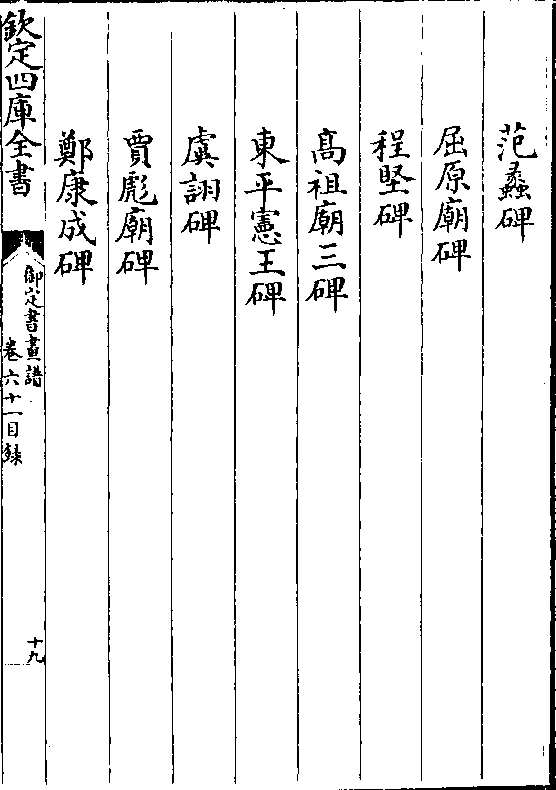 范蠡碑
屈原廟碑
程堅碑
髙祖廟三碑
東平憲王碑
虞詡碑
賈彪廟碑
鄭康成碑
欽定四庫全書
御定書畫譜
卷六十一目録
十九